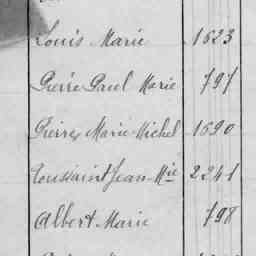 Louis Marie 1623
Pierre Paul Marie 797
Pierre Marie Michel 1690
Toussaint Jean Mie 2241
Albert Marie 798